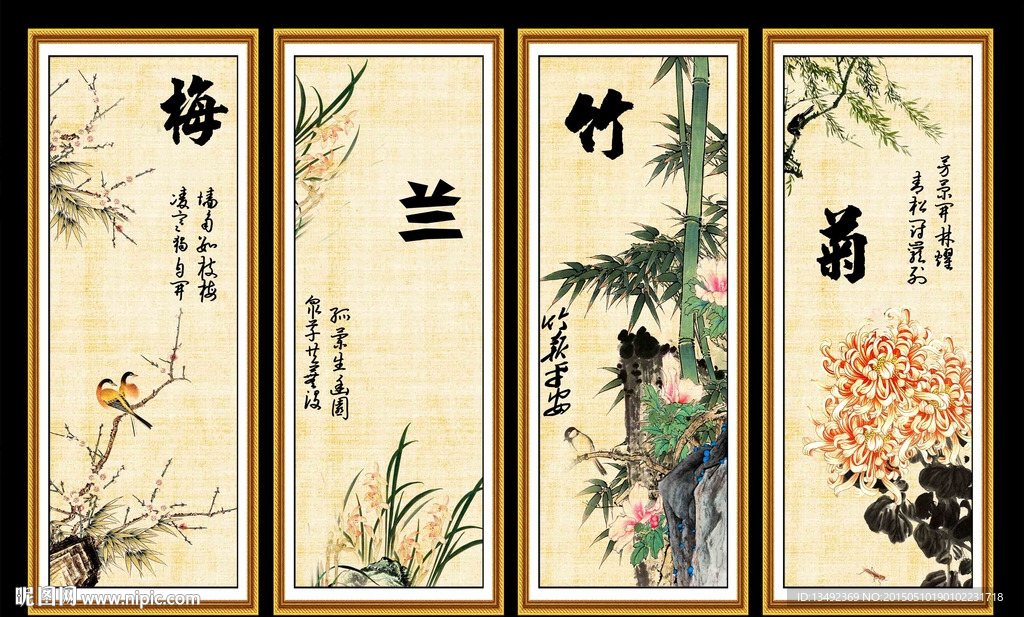 梅
墙角数枝梅
凌寒独自开
兰
孤蘭生幽園
衆草共蕪没
竹
竹報平安
菊
芳菊開林耀
青松冠巖列
昵图网 www.nipic.com
ID:13492369 NO:20150510190102231718